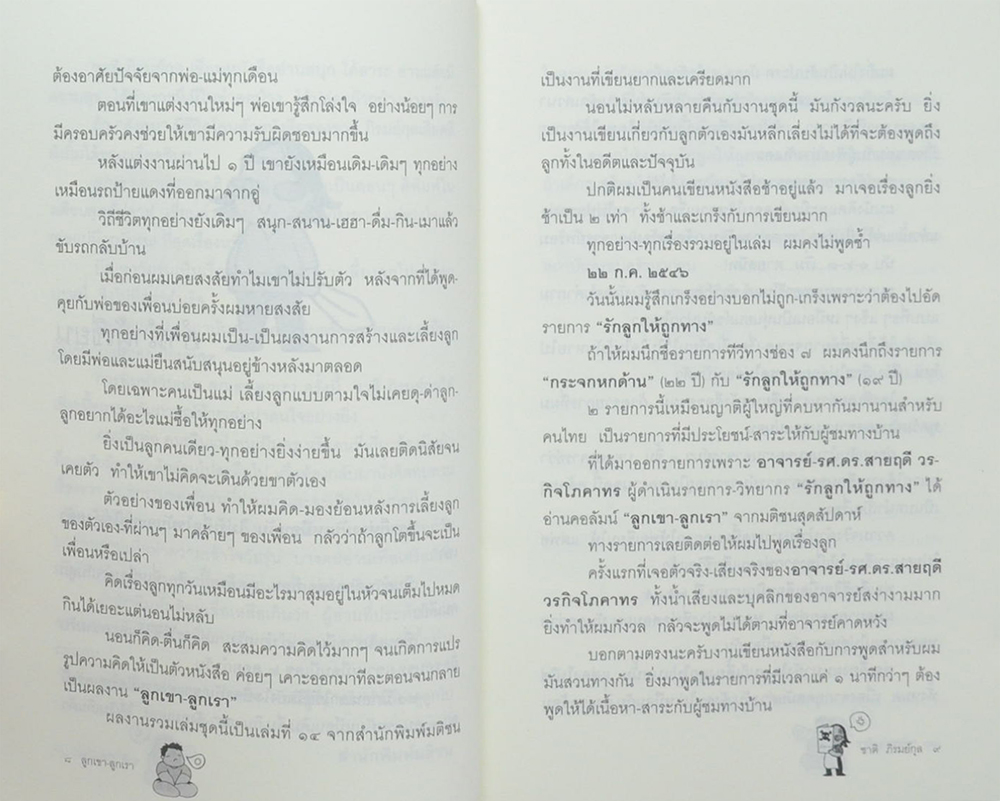 ต้องอาศัยปัจจัยจากพ่อ-แม่ทุกเดือน
ตอนที่เขาแต่งงานใหม่ๆ พ่อเขารู้สึกโล่งใจ อย่างน้อยๆ การ
มีครอบครัวคงช่วยให้เขามีความรับผิดชอบมากขึ้น
หลังแต่งงานผ่านไป ๑ ปี เขายังเหมือนเดิม-เดิมๆ ทุกอย่าง
เหมือนรถป้ายแดงที่ออกมาจากอู่
วิถีชีวิตทุกอย่างยังเดิมๆ สนุก-สนาน-เฮฮา-ดื่ม-กิน-เมาแล้ว
ขับรถกลับบ้าน
เมื่อก่อนผมเคยสงสัยทำไมเขาไม่ปรับตัว หลังจากที่ได้พูด-
คุยกับพ่อของเพื่อนบ่อยครั้งผมหายสงสัย
ทุกอย่างที่เพื่อนผมเป็น-เป็นผลงานการสร้างและเลี้ยงลูก
โดยมีพ่อและแม่ยืนสนับสนุนอยู่ข้างหลังมาตลอด
โดยเฉพาะคนเป็นแม่ เลี้ยงลูกแบบตามใจไม่เคยดุ-ด่าลูก-
ลูกอยากได้อะไรแม่ซื้อให้ทุกอย่าง
ยิ่งเป็นลูกคนเดียว-ทุกอย่างยิ่งง่ายขึ้น มันเลยติดนิสัยจน
เคยตัว ทำให้เขาไม่คิดจะเดินด้วยขาตัวเอง
ตัวอย่างของเพื่อน ทำให้ผมคิด-มองย้อนหลังการเลี้ยงลูก
ของตัวเอง-ที่ผ่านๆ มาคล้ายๆ ของเพื่อน กลัวว่าถ้าลูกโตขึ้นจะเป็น
เพื่อนหรือเปล่า
คิดเรื่องลูกทุกวันเหมือนมีอะไรมาสุมอยู่ในหัวจนเต็มไปหมด
กินได้เยอะแต่นอนไม่หลับ
นอนก็คิด-ตื่นก็คิด สะสมความคิดไว้มากๆ จนเกิดการแปร
รูปความคิดให้เป็นตัวหนังสือ ค่อยๆ เคาะออกมาทีละตอนจนกลาย
เป็นผลงาน “ลูกเขา-ลูกเรา”
ผลงานรวมเล่มชุดนี้เป็นเล่มที่ ๑๔ จากสำนักพิมพ์มติชน
๘ ลูกเขา-ลูกเรา
เป็นงานที่เขียนยากและเครียดมาก
นอนไม่หลับหลายคืนกับงานชุดนี้ มันกังวลนะครับ ยิ่ง
เป็นงานเขียนเกี่ยวกับลูกตัวเองมันหลีกเลี่ยงไม่ได้ที่จะต้องพูดถึง
ลูกทั้งในอดีตและปัจจุบัน
ปกติผมเป็นคนเขียนหนังสือช้าอยู่แล้ว มาเจอเรื่องลูกยิ่ง
ช้าเป็น ๒ เท่า ทั้งช้าและเกร็งกับการเขียนมาก
ทุกอย่าง-ทุกเรื่องรวมอยู่ในเล่ม ผมคงไม่พูดซ้ำ
๒๒ ก.ค. ๒๕๔๖
วันนั้นผมรู้สึกเกร็งอย่างบอกไม่ถูก-เกร็งเพราะว่าต้องไปอัด
รายการ “รักลูกให้ถูกทาง”
ถ้าให้ผมนึกชื่อรายการทีวีทางช่อง ๗ ผมคงนึกถึงรายการ
“กระจกหกด้าน” (๒๒ ปี) กับ “รักลูกให้ถูกทาง” (๑๙ ปี)
๒ รายการนี้เหมือนญาติผู้ใหญ่ที่คบหากันมานานสำหรับ
คนไทย เป็นรายการที่มีประโยชน์-สาระให้กับผู้ชมทางบ้าน
ที่ได้มาออกรายการเพราะ อาจารย์-รศ.ดร.สายฤดี วร-
กิจโภคาทร ผู้ดำเนินรายการ-วิทยากร “รักลูกให้ถูกทาง” ได้
อ่านคอลัมน์ “ลูกเขา-ลูกเรา” จากมติชนสุดสัปดาห์
ทางรายการเลยติดต่อให้ผมไปพูดเรื่องลูก
ครั้งแรกที่เจอตัวจริง-เสียงจริงของอาจารย์-รศ.ดร.สายฤดี
วรกิจโภคาทร ทั้งน้ำเสียงและบุคลิกของอาจารย์สง่างามมาก
ยิ่งทำให้ผมกังวล กลัวจะพูดไม่ได้ตามที่อาจารย์คาดหวัง
บอกตามตรงนะครับงานเขียนหนังสือกับการพูดสำหรับผม
มันสวนทางกัน ยิ่งมาพูดในรายการที่มีเวลาแค่ ๑ นาทีกว่าๆ ต้อง
พูดให้ได้เนื้อหา-สาระกับผู้ชมทางบ้าน
ชาติ ภิรมย์กุล ๙